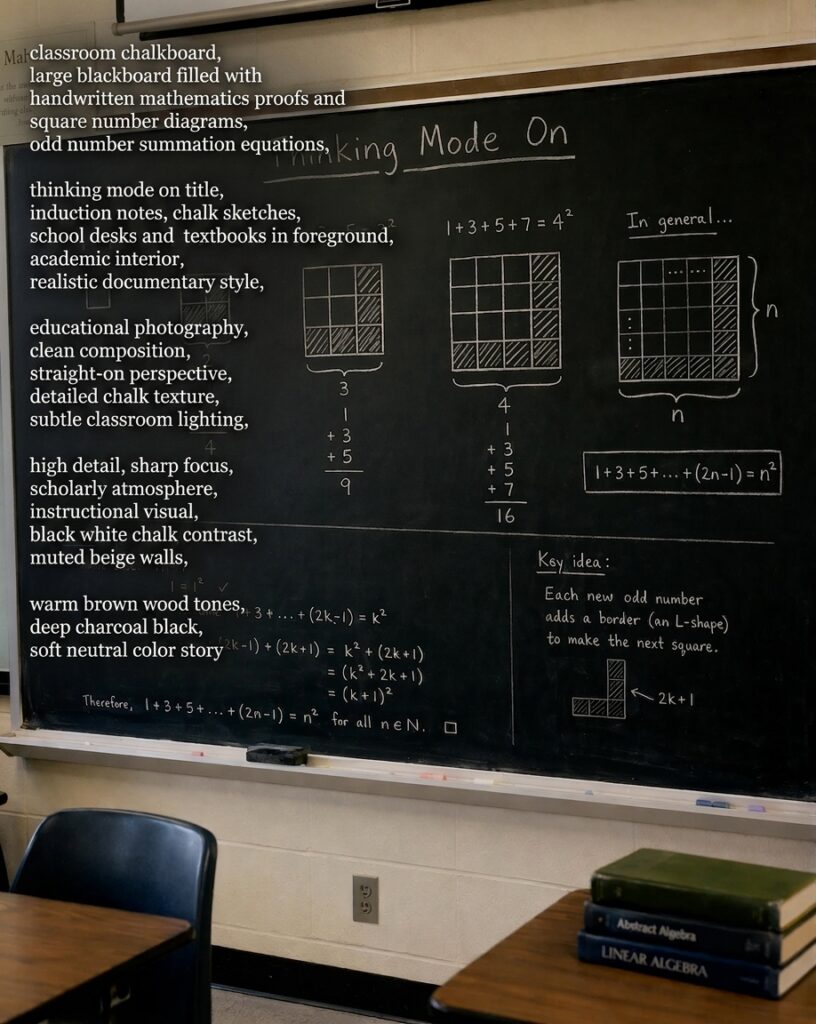 classroom chalkboard,
large blackboard filled with
handwritten mathematics proofs and
square number diagrams,
odd number summation equations,
thinking mode on title,
induction notes, chalk sketches,
school desks and textbooks in foreground,
academic interior,
realistic documentary style,
educational photography,
clean composition,
straight-on perspective,
detailed chalk texture,
subtle classroom lighting,
high detail, sharp focus,
scholarly atmosphere,
instructional visual,
black white chalk contrast,
muted beige walls,
warm brown wood tones,
deep charcoal black,
soft neutral color story
Thinking Mode On
3
1
+ 3
+ 5
9
1+3+5+7 = 4²
4
1
+ 3
+ 5
+ 7
16
In general...
n
n
1+3+5+...+(2n-1) = n²
4
1 = 1² ✓
+3 + ... + (2k-1) = k²
2k-1) + (2k+1) = k² + (2k+1)
= (k² + 2k+1)
= (k+1)²
Therefore, 1+3+5+...+(2n-1) = n² for all n∈N. □
Key idea:
Each new odd number
adds a border (an L-shape)
to make the next square.
2k+1
Abstract Algebra
LINEAR ALGEBRA